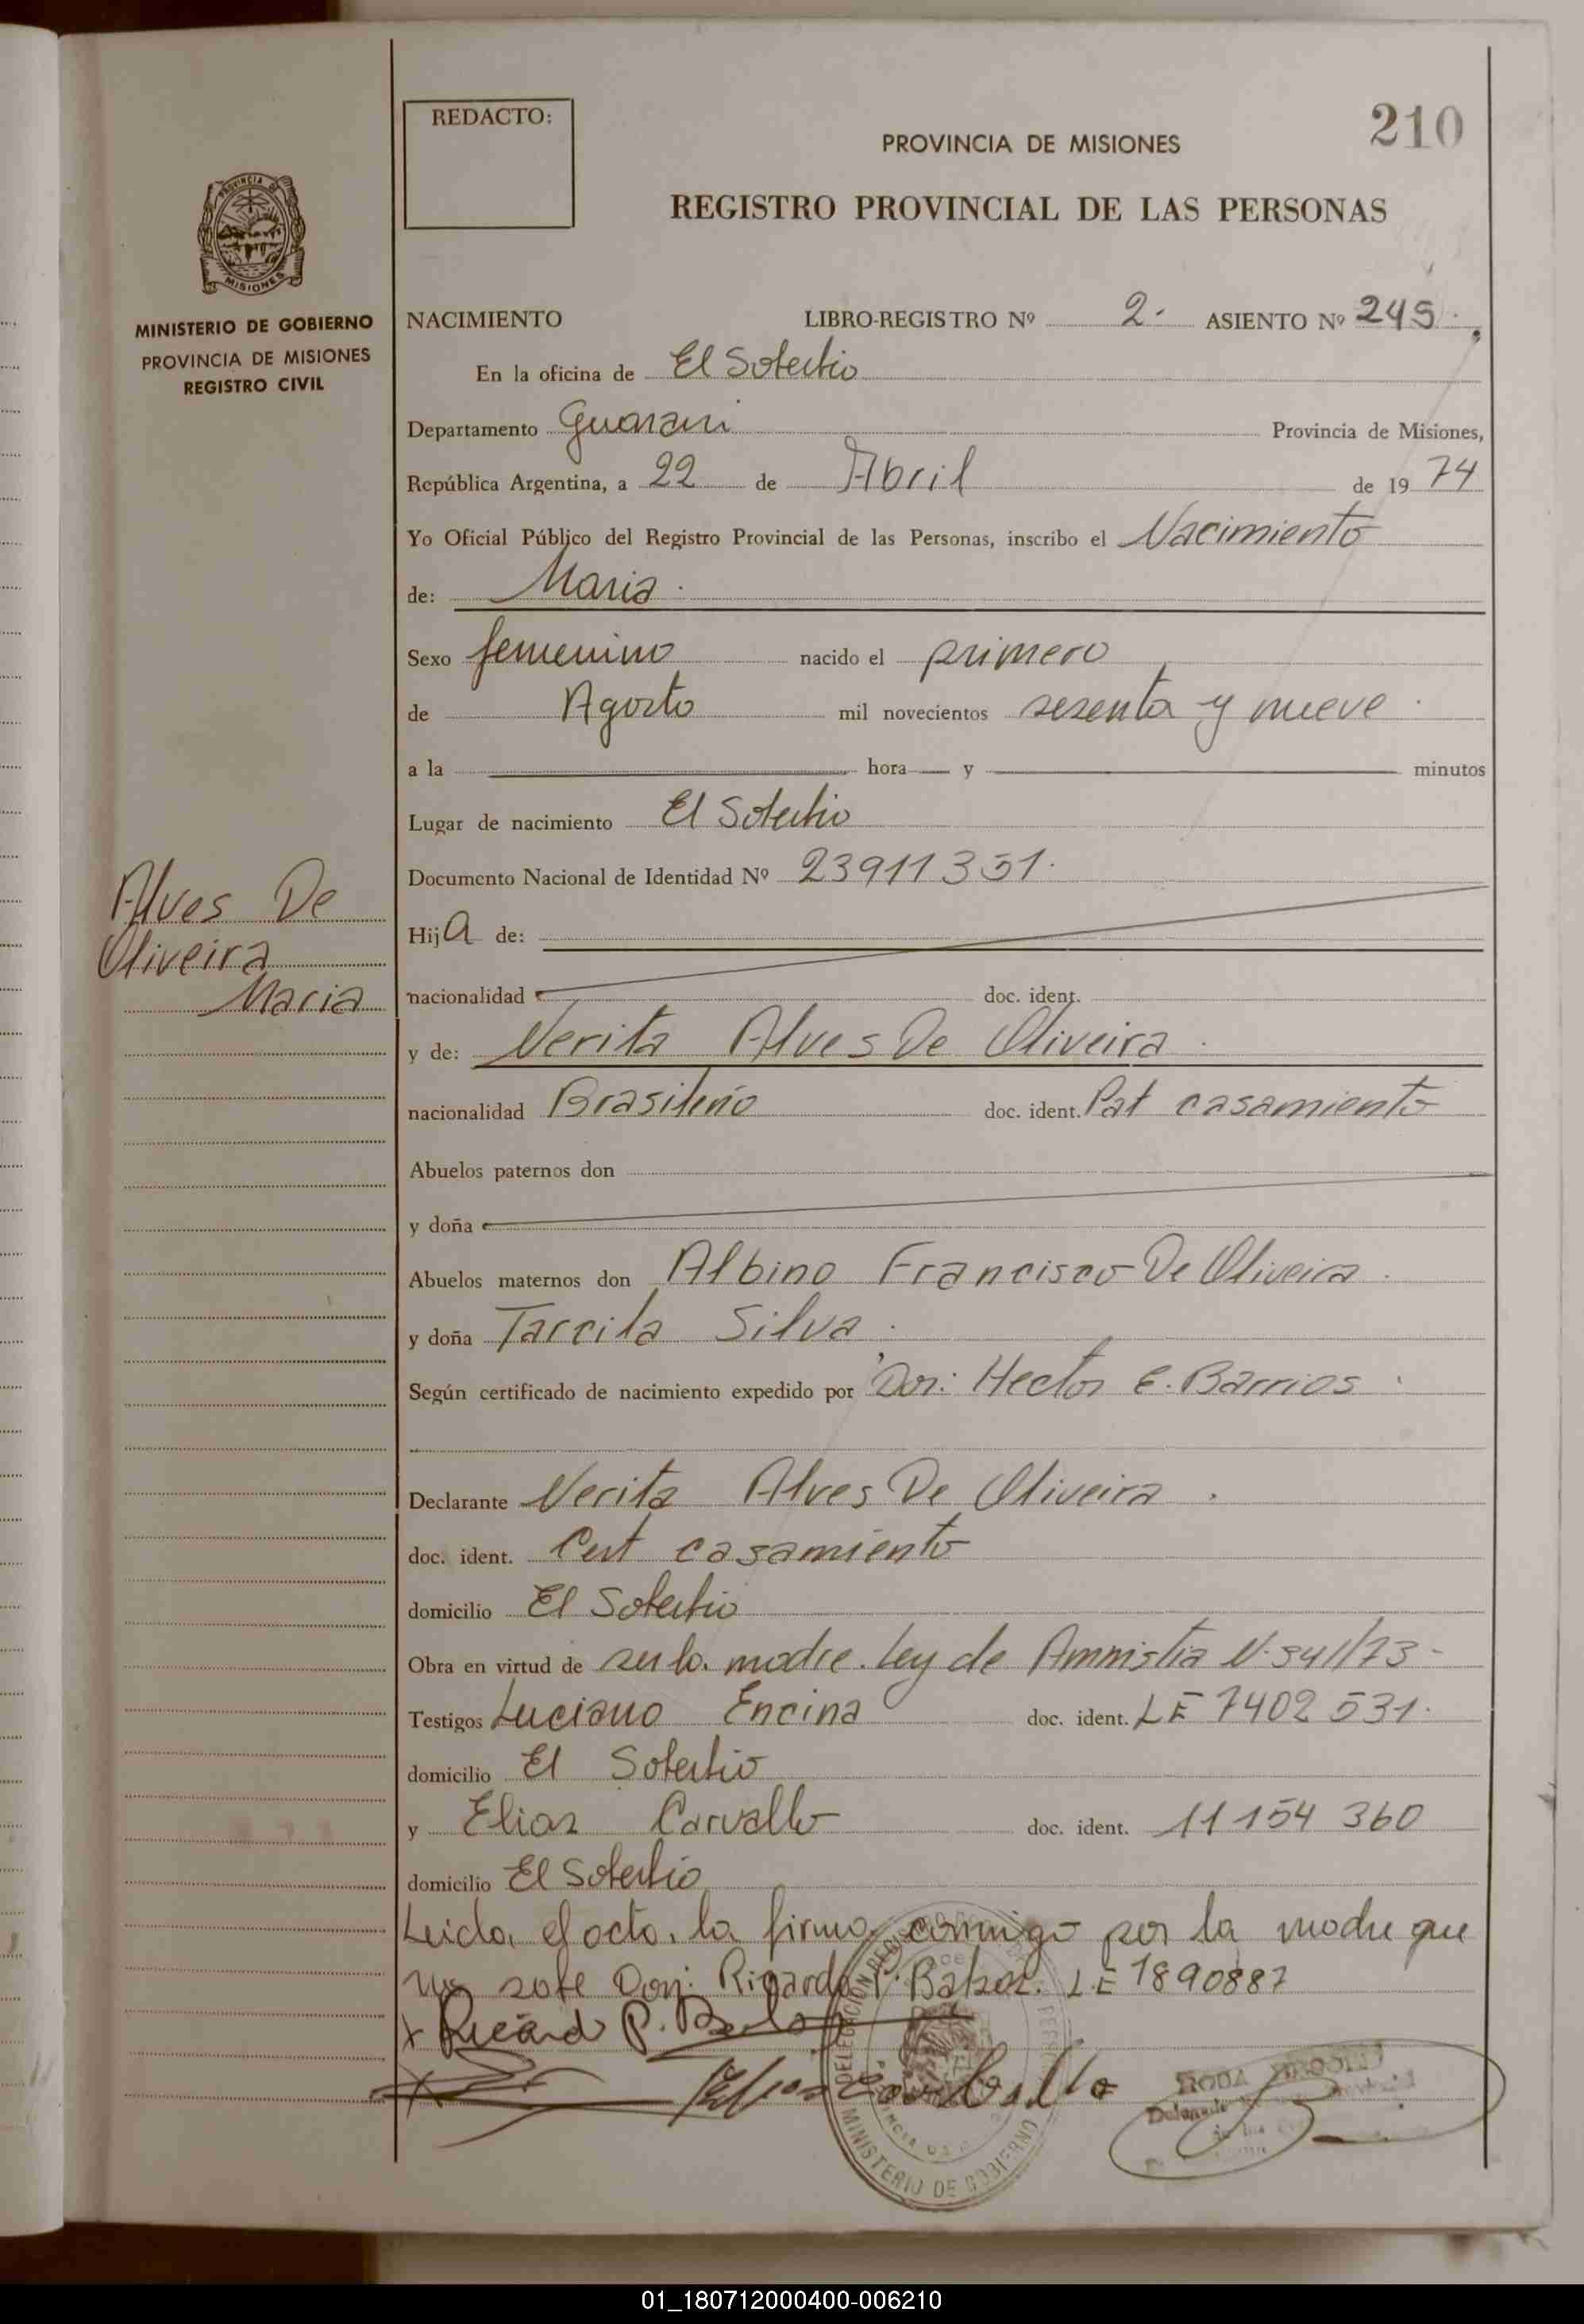 210
REDACTO:
PROVINCIA DE MISIONES
REGISTRO PROVINCIAL DE LAS PERSONAS
PROVINCIA DE
MISIONES
MINISTERIO DE GOBIERNO
PROVINCIA DE MISIONES
REGISTRO CIVIL
NACIMIENTO LIBRO-REGISTRO Nº 2. ASIENTO Nº 245.
En la oficina de El Soberbio
Departamento Guarani Provincia de Misiones,
República Argentina, a 22 de Abril de 19 74
Yo Oficial Público del Registro Provincial de las Personas, inscribo el Nacimiento
de: Maria.
Sexo femenino nacido el primero
de Agosto mil novecientos sesenta y nueve.
a la hora y minutos
Lugar de nacimiento El Soberbio
Documento Nacional de Identidad Nº 23911331.
Alves De
Oliveira
Maria
Hija de:
nacionalidad doc. ident.
y de: Nerita Alves De Oliveira.
nacionalidad Brasileño doc. ident. casamiento
Abuelos paternos don
y doña
Abuelos maternos don Albino Francisco De Oliveira.
y doña Tarcila Silva.
Según certificado de nacimiento expedido por Don: Hector E. Barrios.
Declarante Nerita Alves De Oliveira.
doc. ident. Cert casamiento
domicilio El Soberbio
Obra en virtud de ser la madre. Ley de Amnistia N. 341/73-
Testigos Luciano Encina doc. ident. LE 7402 531.
domicilio El Soberbio
y Elias Carvallo doc. ident. 11 154 360
domicilio El Soberbio
Leida el acta, la firma conmigo por la madre que
no sabe Don: Ricardo P. LE 1890887
x Ricard P.
MINISTERIO DE GOBIERNO
01_180712000400-006210